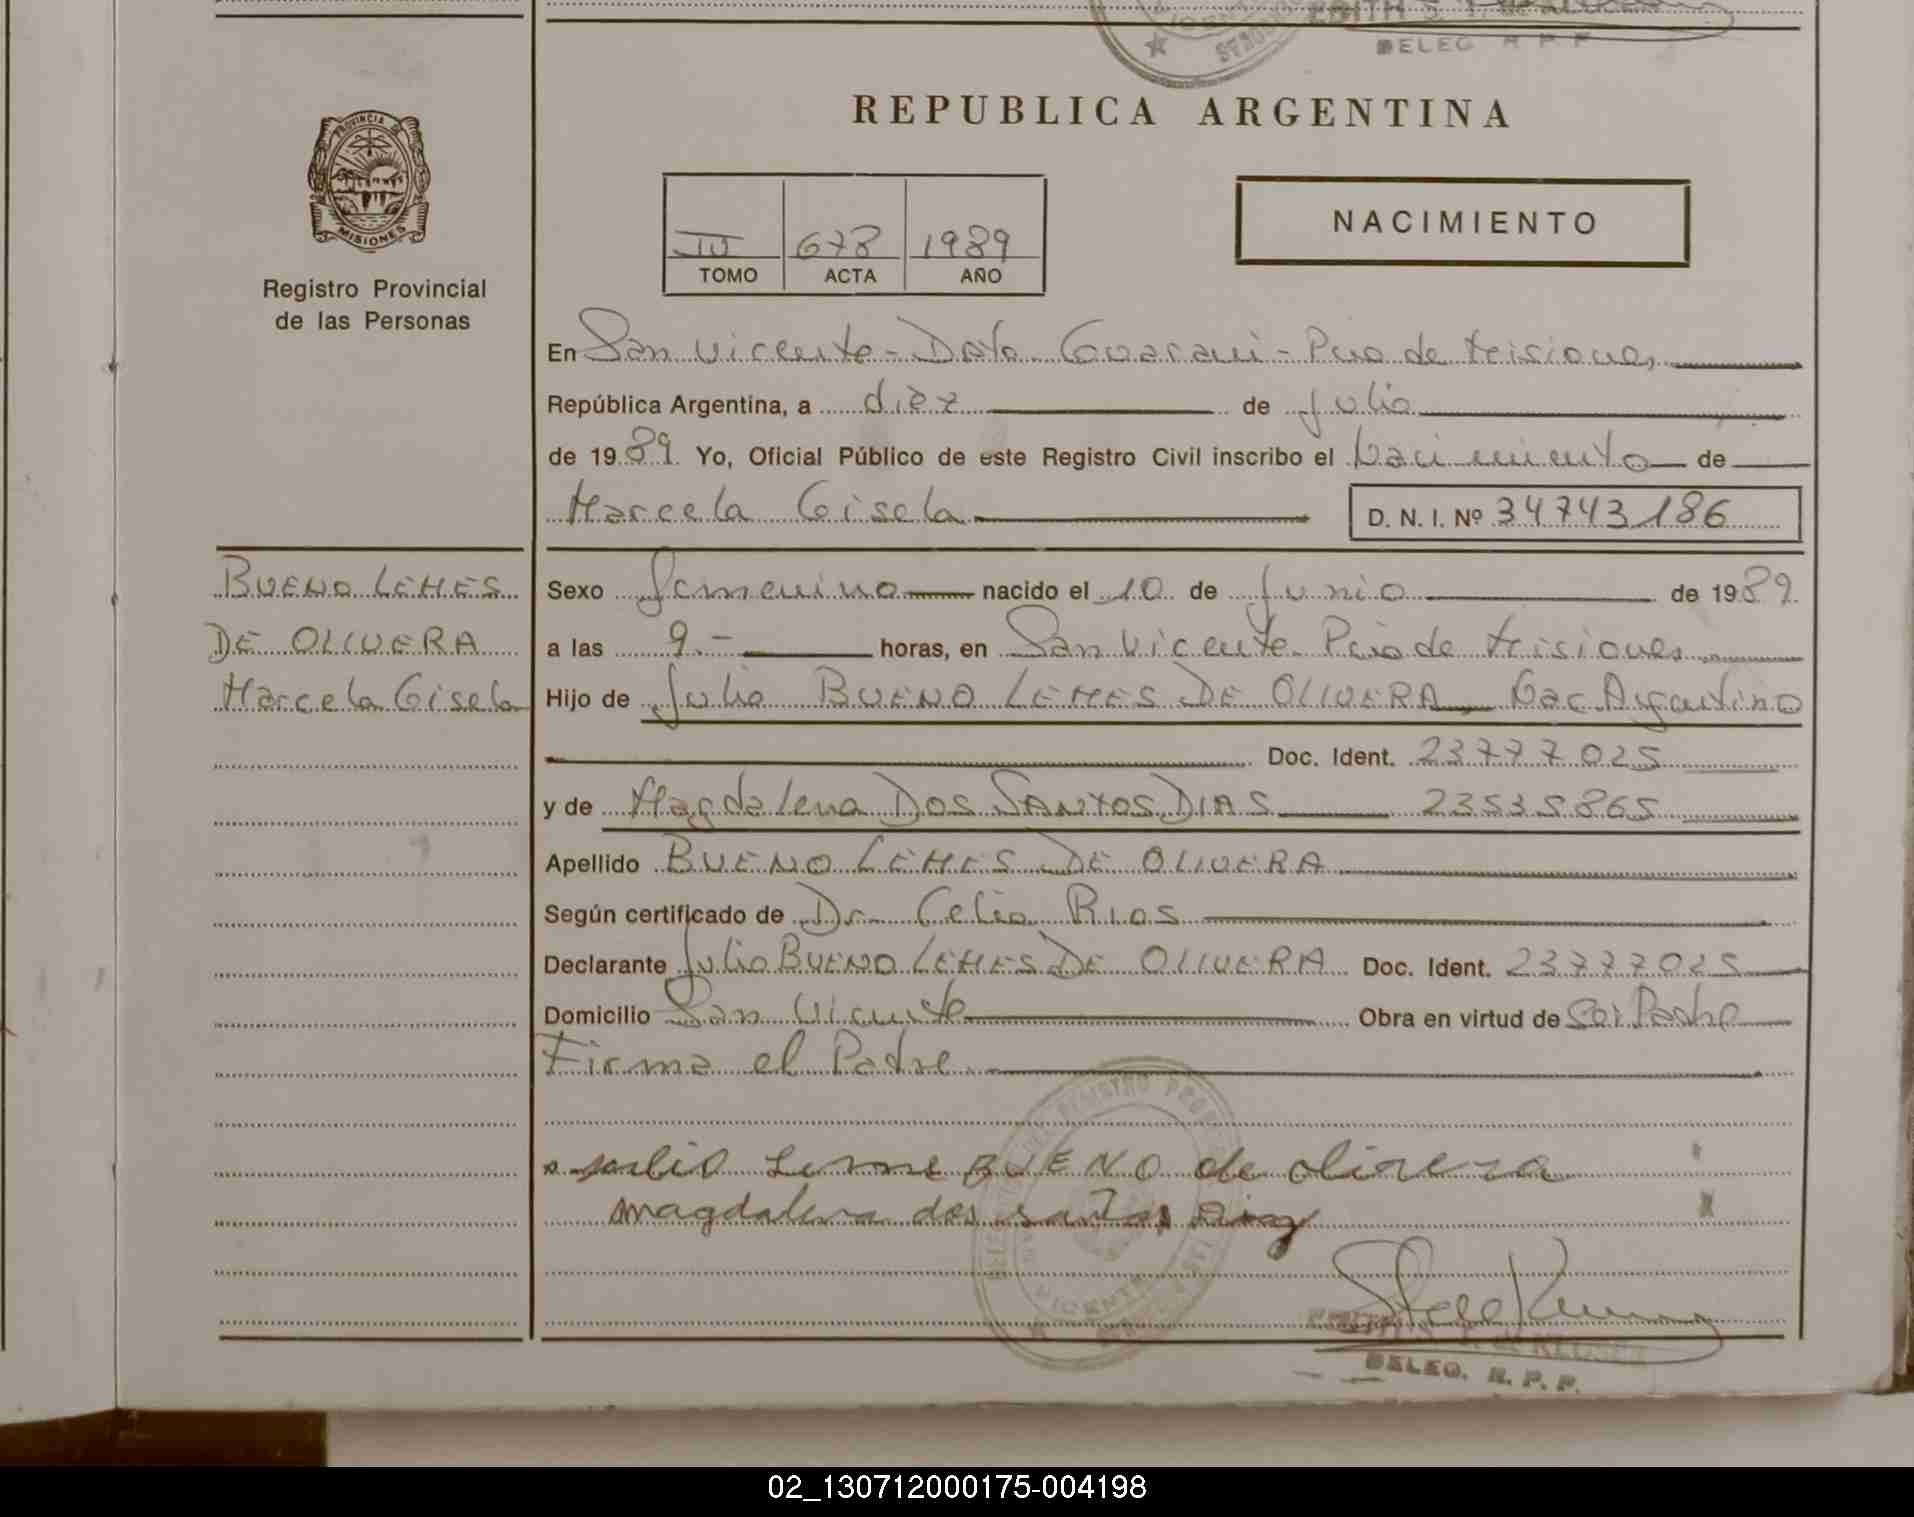 DELEG. R. P. P.
PROVINCIA DE
MISIONES
Registro Provincial
de las Personas
REPUBLICA ARGENTINA
NACIMIENTO
678 1989
TOMO ACTA AÑO
En San Vicente - Dpto Guarani - Pcia de Misiones
República Argentina, a diez de Julio
de 1989. Yo, Oficial Público de este Registro Civil inscribo el Nacimiento de
Marcela Gisela D. N. I. Nº 34743186
BUENO LEMES
DE OLIVERA
Marcela Gisela
Sexo Femenino nacido el 10 de Junio de 1989.
a las 9.- horas, en San Vicente Pcia de Misiones
Hijo de Julio BUENO LEMES DE OLIVERA Nac. Argentino
Doc. Ident. 23777025
y de Magdalena DOS SANTOS DIAS 23535865
Apellido BUENO LEMES DE OLIVERA
Según certificado de Dr. Celio RIOS
Declarante Julio BUENO LEMES DE OLIVERA Doc. Ident. 23777025
Domicilio San Vicente Obra en virtud de ser Padre
Firma el Padre.
Julio Leme BUENO de olivera
magdalena dos santos Diaz
DELEG. R. P. P.
02_130712000175-004198